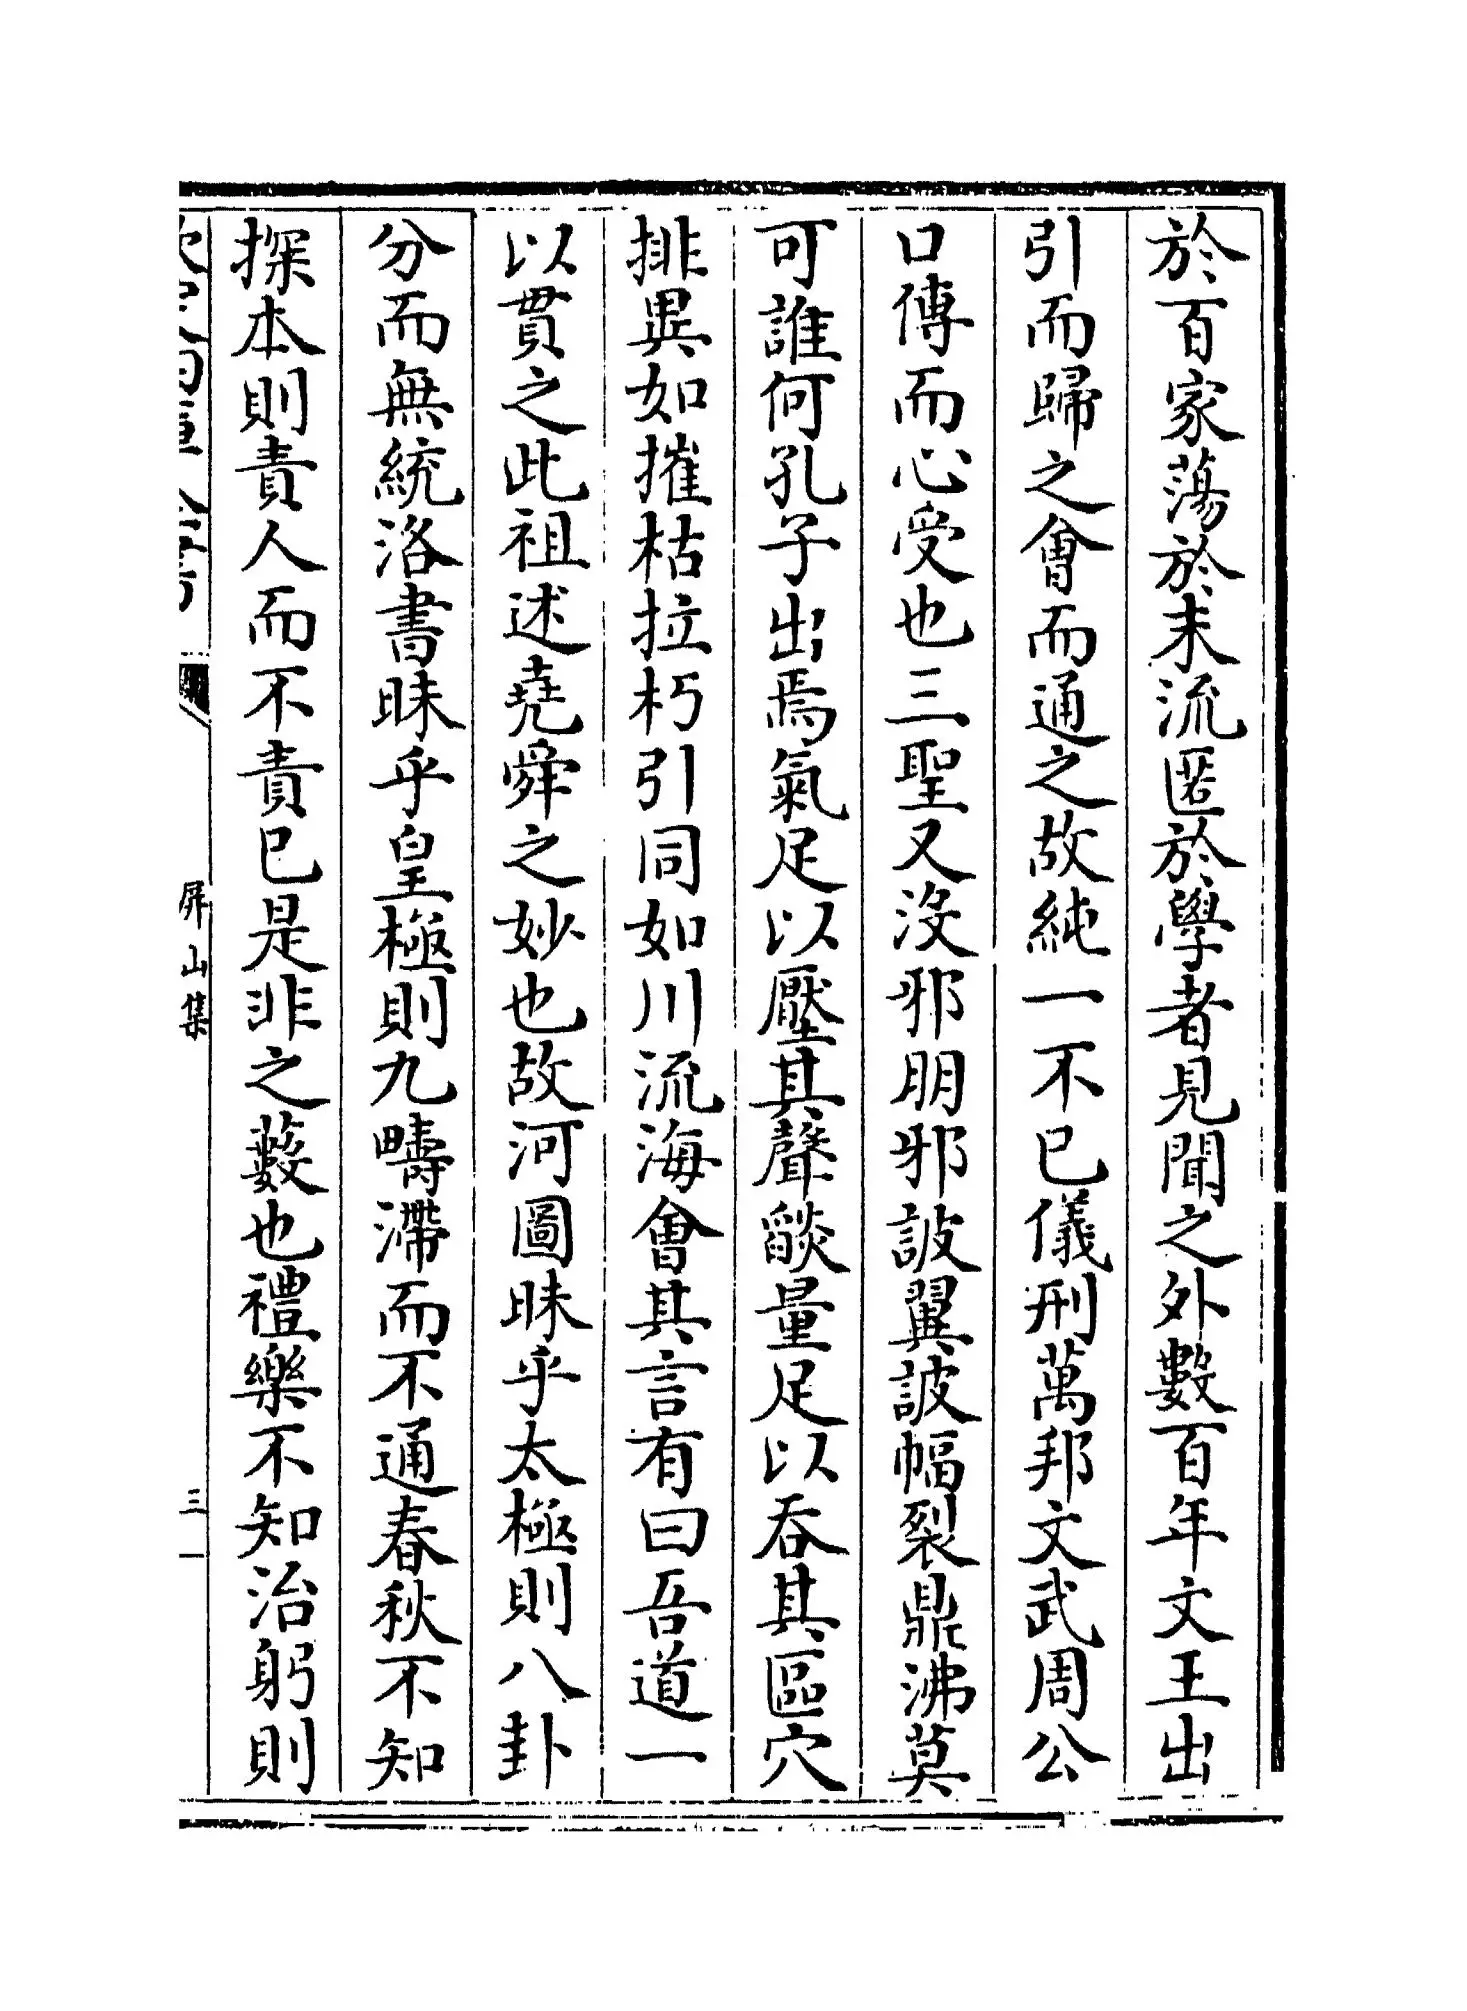 於百家蕩於末流匿於學者見聞之外數百年文王出
引而歸之會而通之故純一不已儀刑萬邦文武周公
口傳而心受也三聖又没邪朋邪詖翼詖幅裂鼎沸莫
可誰何孔子出焉氣足以壓其聲燄量足以吞其區穴
排異如摧枯拉朽引同如川流海會其言有曰吾道一
以貫之此祖述堯舜之妙也故河圖昧乎太極則八卦
分而無統洛書昧乎皇極則九疇滯而不通春秋不知
探本則責人而不責已是非之藪也禮樂不知治躬則
欽定四庫全書
屏山集
三